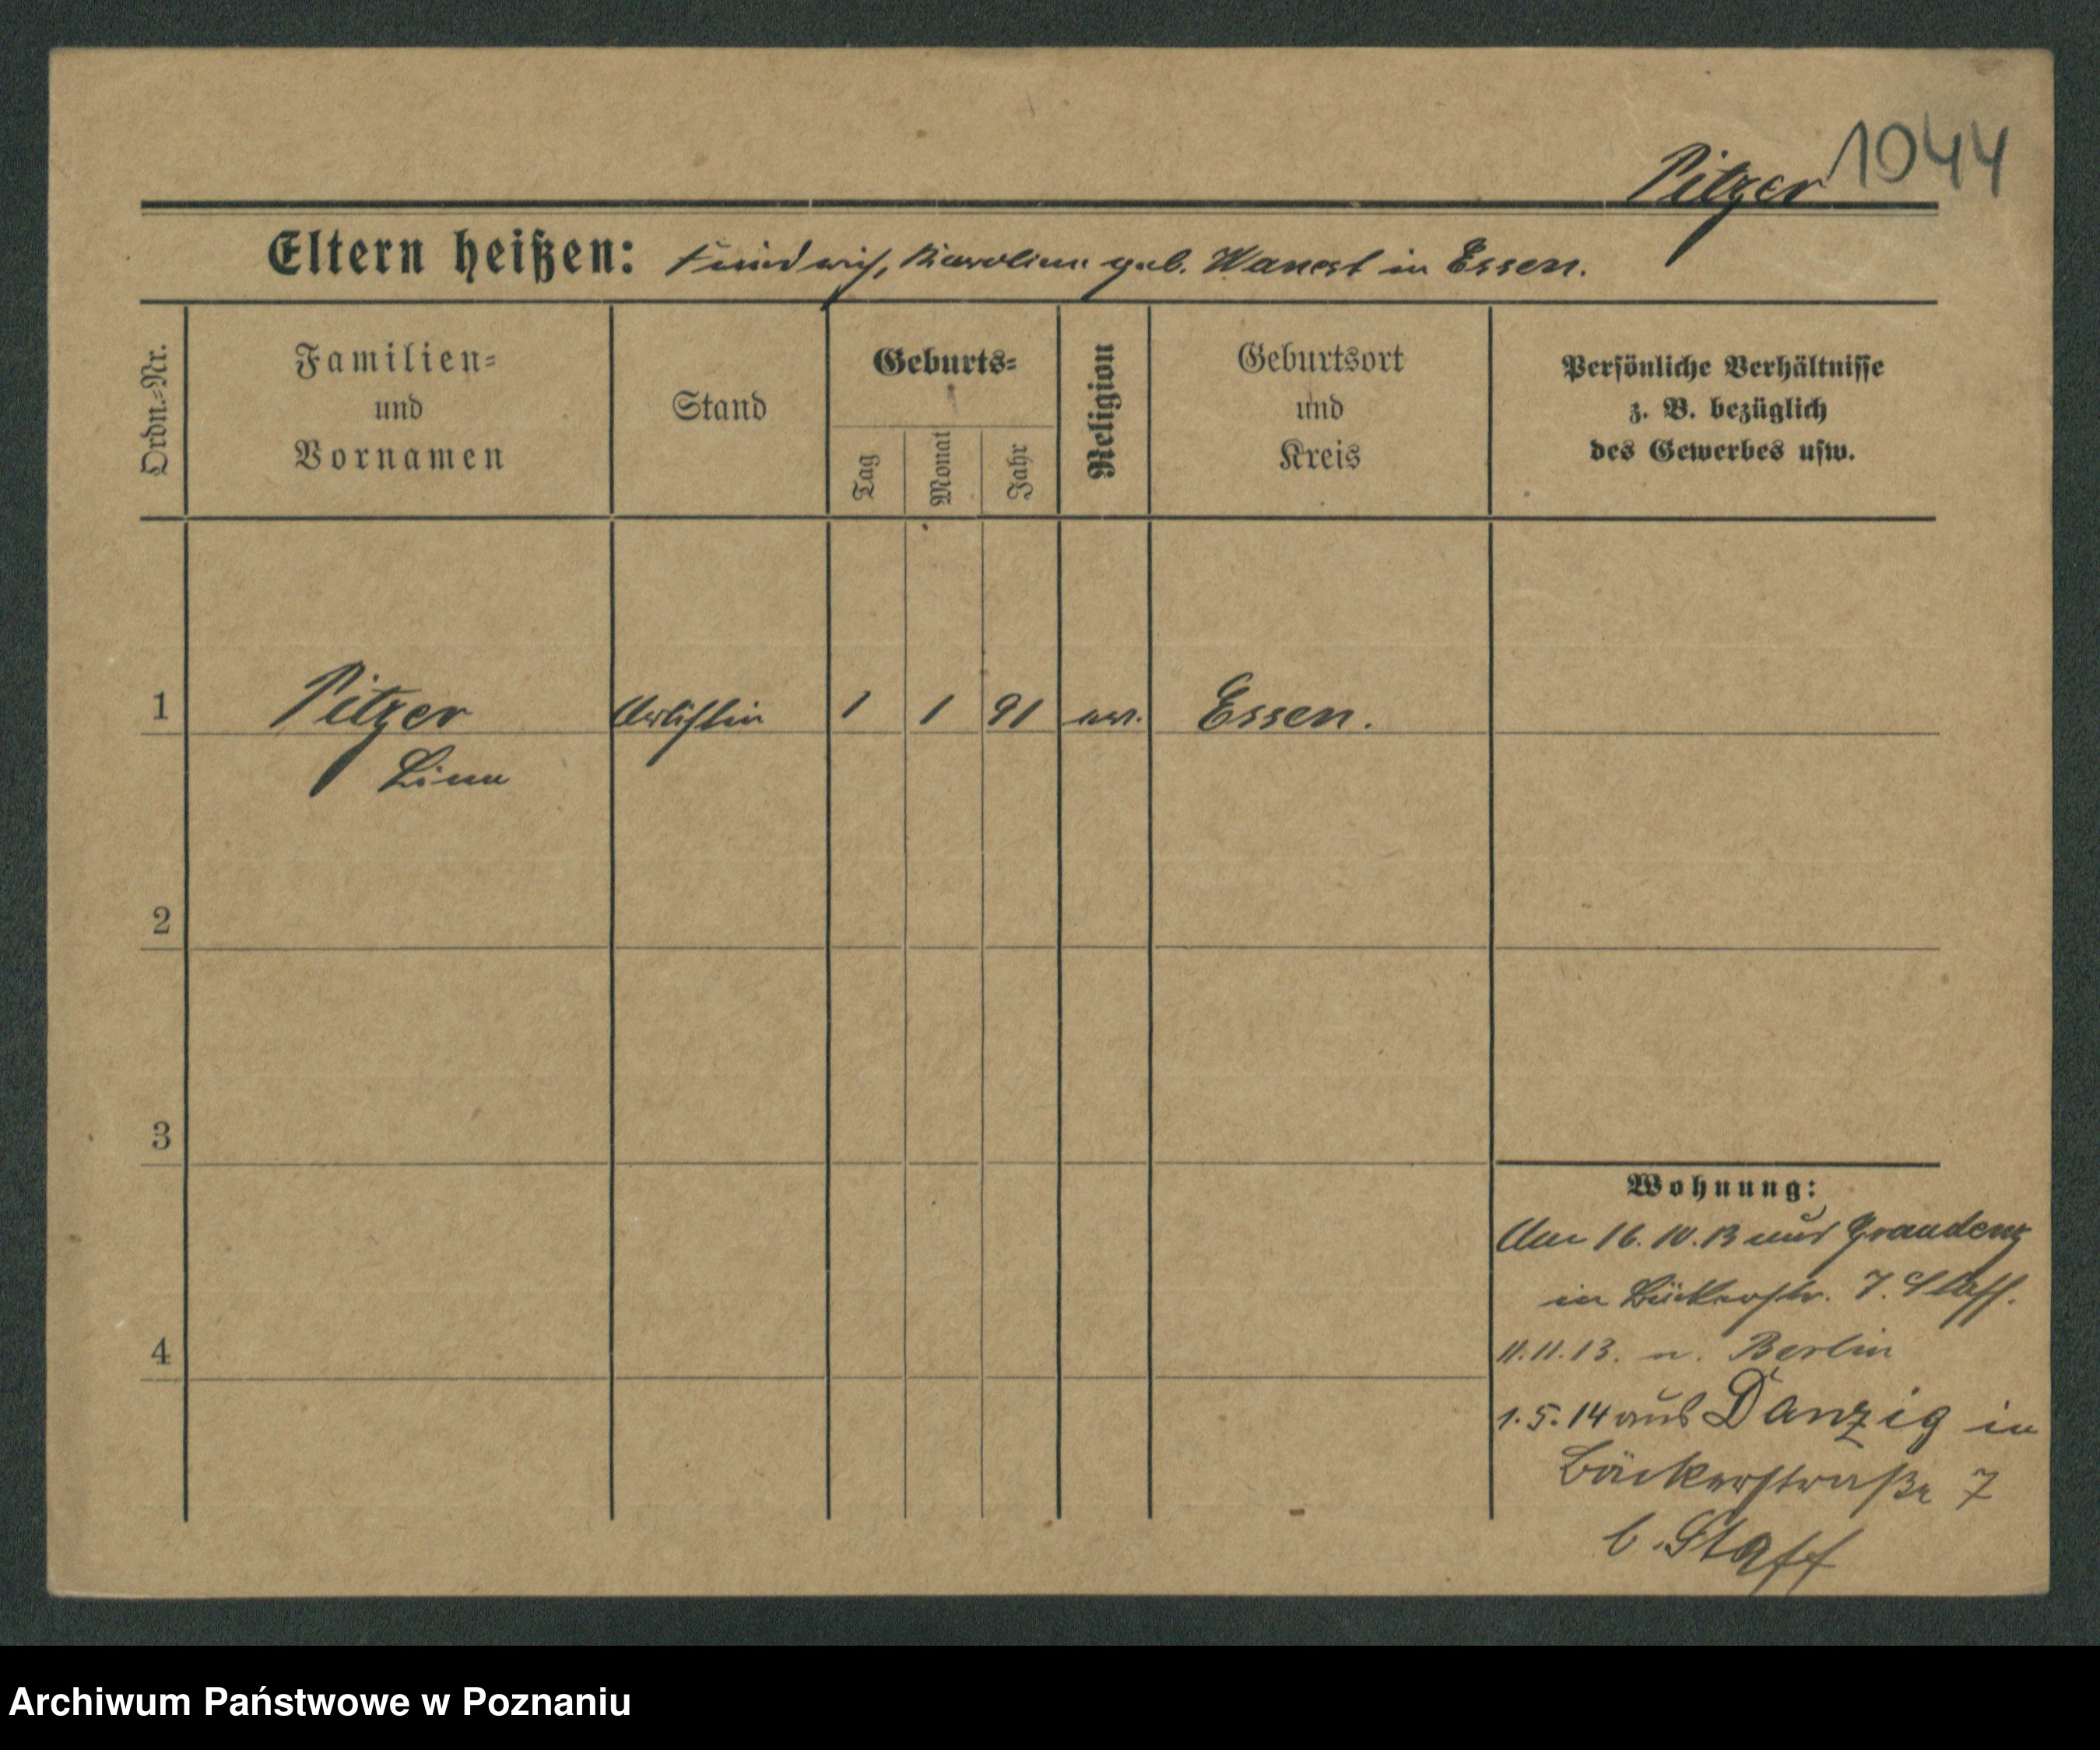 1044
Pitzer
Eltern heißen: Karoline geb. in Essen.
Ordn.-Nr.
Familien-
und
Vornamen
Stand
Geburts-
Tag
Monat
Jahr
Religion
Geburtsort
und
Kreis
Persönliche Verhältnisse
z. B. bezüglich
des Gewerbes usw.
1 Pitzer Artistin 1 1 91 Essen.
Lina
2
3
4
Wohnung:
16.10.13 aus Graudenz
in Bäckerstr. 7. Staff.
11.11.13. n. Berlin
1.5.14 aus Danzig in
Bäckerstraße 7
b. Staff
Archiwum Państwowe w Poznaniu